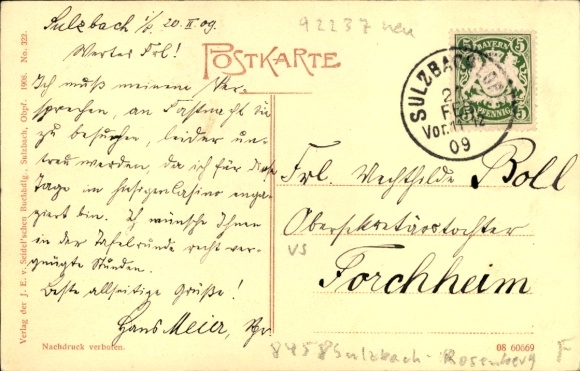 Sulzbach i/O. 20 II 09.
92237 neu
Wertes Frl!
POSTKARTE
Ich muß meinem Ver-
sprechen, an Fastnacht Sie
zu besuchen, leider un-
treu werden, da ich für diese
Tage im hiesigen Casino enga-
giert bin. Ich wünsche Ihnen
in der Tafelrunde recht ver-
gnügte Stunden.
Beste allseitige Grüße!
Hans Meier,
BAYERN
5 5
PFENNIG
SULZBACH
FEB
Vor.11
09
Frl. Mechthilde Boll
Obersekretärstochter
VS
Forchheim
Verlag der J. E. v. Seidel'schen Buchhdlg., Sulzbach, Obpf. 1906. No. 322.
Nachdruck verboten.
08 60669
8458 Sulzbach-Rosenberg F